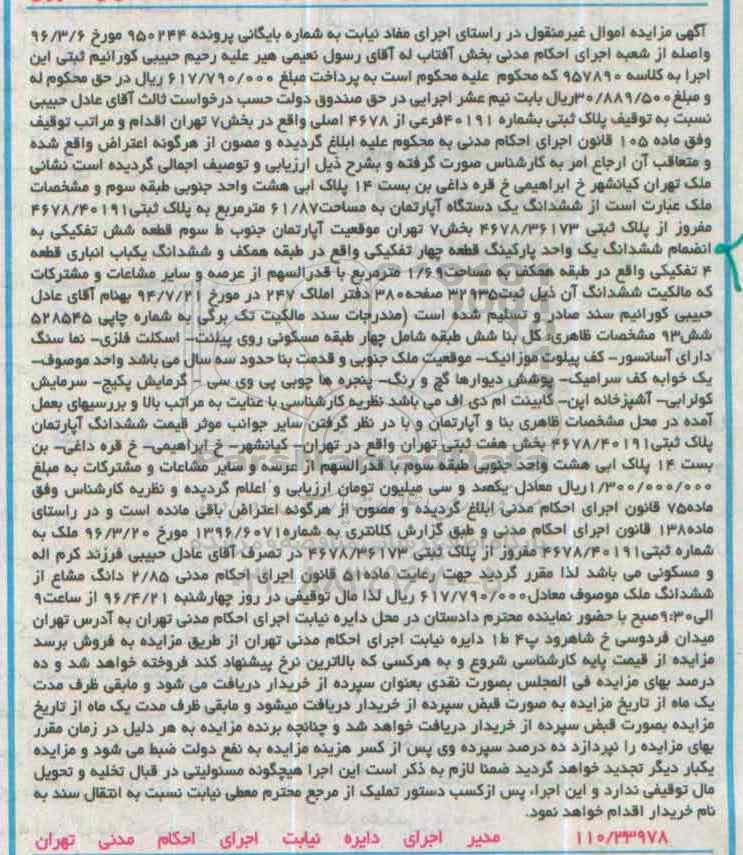 آگهی مزایده اموال غیرمنقول در راستای اجرای مفاد نیابت به شماره بایگانی پرونده ۹۵۰۲۴۴ مورخ ۹۶/۳/۶
واصله از شعبه اجرای احکام مدنی بخش آفتاب له آقای رسول نعیمی هیر علیه رحیم حبیبی کورانیم ثبتی این
اجرا به کلاسه ۹۵۷۸۹۰ که محکوم علیه محکوم است به پرداخت مبلغ ۶۱۷/۷۹۰/۰۰۰ ریال در حق محکوم له
و مبلغ۳۰/۸۸۹/۵۰۰ریال بابت نیم عشر اجرایی در حق صندوق دولت حسب درخواست ثالث آقای عادل حبیبی
نسبت به توقیف پلاک ثبتی بشماره ۴۰۱۹۱فرعی از ۴۶۷۸ اصلی واقع در بخش۷ تهران اقدام و مراتب توقیف
وفق ماده ۱۰۵ قانون اجرای احکام مدنی به محکوم علیه ابلاغ گردیده و مصون از هرگونه اعتراض واقع شده
و متعاقب آن ارجاع امر به کارشناس صورت گرفته و بشرح ذیل ارزیابی و توصیف اجمالی گردیده است نشانی
ملک تهران کیانشهر خ ابراهیمی خ قره داغی بن بست ۱۴ پلاک ابی هشت واحد جنوبی طبقه سوم و مشخصات
ملک عبارت است از ششدانگ یک دستگاه آپارتمان به مساحت۶۱/۸۷ مترمربع به پلاک ثبتی۴۶۷۸/۴۰۱۹۱
مفروز از پلاک ثبتی ۴۶۷۸/۳۶۱۷۳ بخش۷ تهران موقعیت آپارتمان جنوب ط سوم قطعه شش تفکیکی به
انضمام ششدانگ یک واحد پارکینگ قطعه چهار تفکیکی واقع در طبقه همکف و ششدانگ یکباب انباری قطعه
۴ تفکیکی واقع در طبقه همکف به مساحت۱/۶۹ مترمربع با قدرالسهم از عرصه و سایر مشاعات و مشترکات
که مالکیت ششدانگ آن ذیل ثبت۳۲۹۳۵ صفحه۳۸۰ دفتر املاک ۲۴۷ در مورخ ۹۴/۷/۲۱ بهنام آقای عادل
حبیبی کورانیم سند صادر و تسلیم شده است (مندرجات سند مالکیت تک برگی به شماره چاپی ۵۲۸۵۴۵
شش۹۳ مشخصات ظاهری: کل بنا شش طبقه شامل چهار طبقه مسکونی روی پیلنت- اسکلت فلزی- نما سنگ
دارای آسانسور- کف پیلوت موزائیک- موقعیت ملک جنوبی و قدمت بنا حدود سه سال می باشد واحد موصوف-
یک خوابه کف سرامیک- پوشش دیوارها گچ و رنگ- پنجره ها چوبی پی وی سی - گرمایش پکیج- سرمایش
کولرابی- آشپزخانه اپن- کابینت ام دی اف می باشد نظریه کارشناسی با عنایت به مراتب بالا و بررسیهای بعمل
آمده در محل مشخصات ظاهری بنا و آپارتمان و با در نظر گرفتن سایر جوانب موثر قیمت ششدانگ آپارتمان
پلاک ثبتی۴۶۷۸/۴۰۱۹۱ بخش هفت ثبتی تهران واقع در تهران- کیانشهر- خ ابراهیمی- خ قره داغی- بن
بست ۱۴ پلاک ابی هشت واحد جنوبی طبقه سوم با قدرالسهم از عرصه و سایر مشاعات و مشترکات به مبلغ
۱/۳۰۰/۰۰۰/۰۰۰ریال معادل یکصد و سی میلیون تومان ارزیابی و اعلام گردیده و نظریه کارشناس وفق
ماده۷۵ قانون اجرای احکام مدنی ابلاغ گردیده و مصون از هرگونه اعتراض باقی مانده است و در راستای
ماده۱۳۸ قانون اجرای احکام مدنی و طبق گزارش کلانتری به شماره۱۳۹۶/۶۰۷۱ مورخ ۹۶/۳/۲۰ ملک به
شماره ثبتی۴۶۷۸/۴۰۱۹۱ مفروز از پلاک ثبتی ۴۶۷۸/۳۶۱۷۳ در تصرف آقای عادل حبیبی فرزند کرم اله
و مسکونی می باشد لذا مقرر گردید جهت رعایت ماده۵۱ قانون اجرای احکام مدنی ۲/۸۵ دانگ مشاع از
ششدانگ ملک موصوف معادل۶۱۷/۷۹۰/۰۰۰ ریال لذا مال توقیفی در روز چهارشنبه ۹۶/۴/۲۱ از ساعت۹
الی۹:۳۰صبح با حضور نماینده محترم دادستان در محل دایره نیابت اجرای احکام مدنی تهران به آدرس تهران
میدان فردوسی خ شاهرود پ۴ ط۱ دایره نیابت اجرای احکام مدنی تهران از طریق مزایده به فروش برسد
مزایده از قیمت پایه کارشناسی شروع و به هرکسی که بالاترین نرخ پیشنهاد کند فروخته خواهد شد و ده
درصد بهای مزایده فی المجلس بصورت نقدی بعنوان سپرده از خریدار دریافت می شود و مابقی ظرف مدت
یک ماه از تاریخ مزایده به صورت قبض سپرده از خریدار دریافت میشود و مابقی ظرف مدت یک ماه از تاریخ
مزایده بصورت قبض سپرده از خریدار دریافت خواهد شد و چنانچه برنده مزایده به هر دلیل در زمان مقرر
بهای مزایده را نپردازد ده درصد سپرده وی پس از کسر هزینه مزایده به نفع دولت ضبط می شود و مزایده
یکبار دیگر تجدید خواهد گردید ضمنا لازم به ذکر است این اجرا هیچگونه مسئولیتی در قبال تخلیه و تحویل
مال توقیفی ندارد و این اجرا، پس ازکسب دستور تملیک از مرجع محترم معطی نیابت نسبت به انتقال سند به
نام خریدار اقدام خواهد نمود.
۱۱۰/۳۳۹۷۸ مدیر اجرای دایره نیابت اجرای احکام مدنی تهران